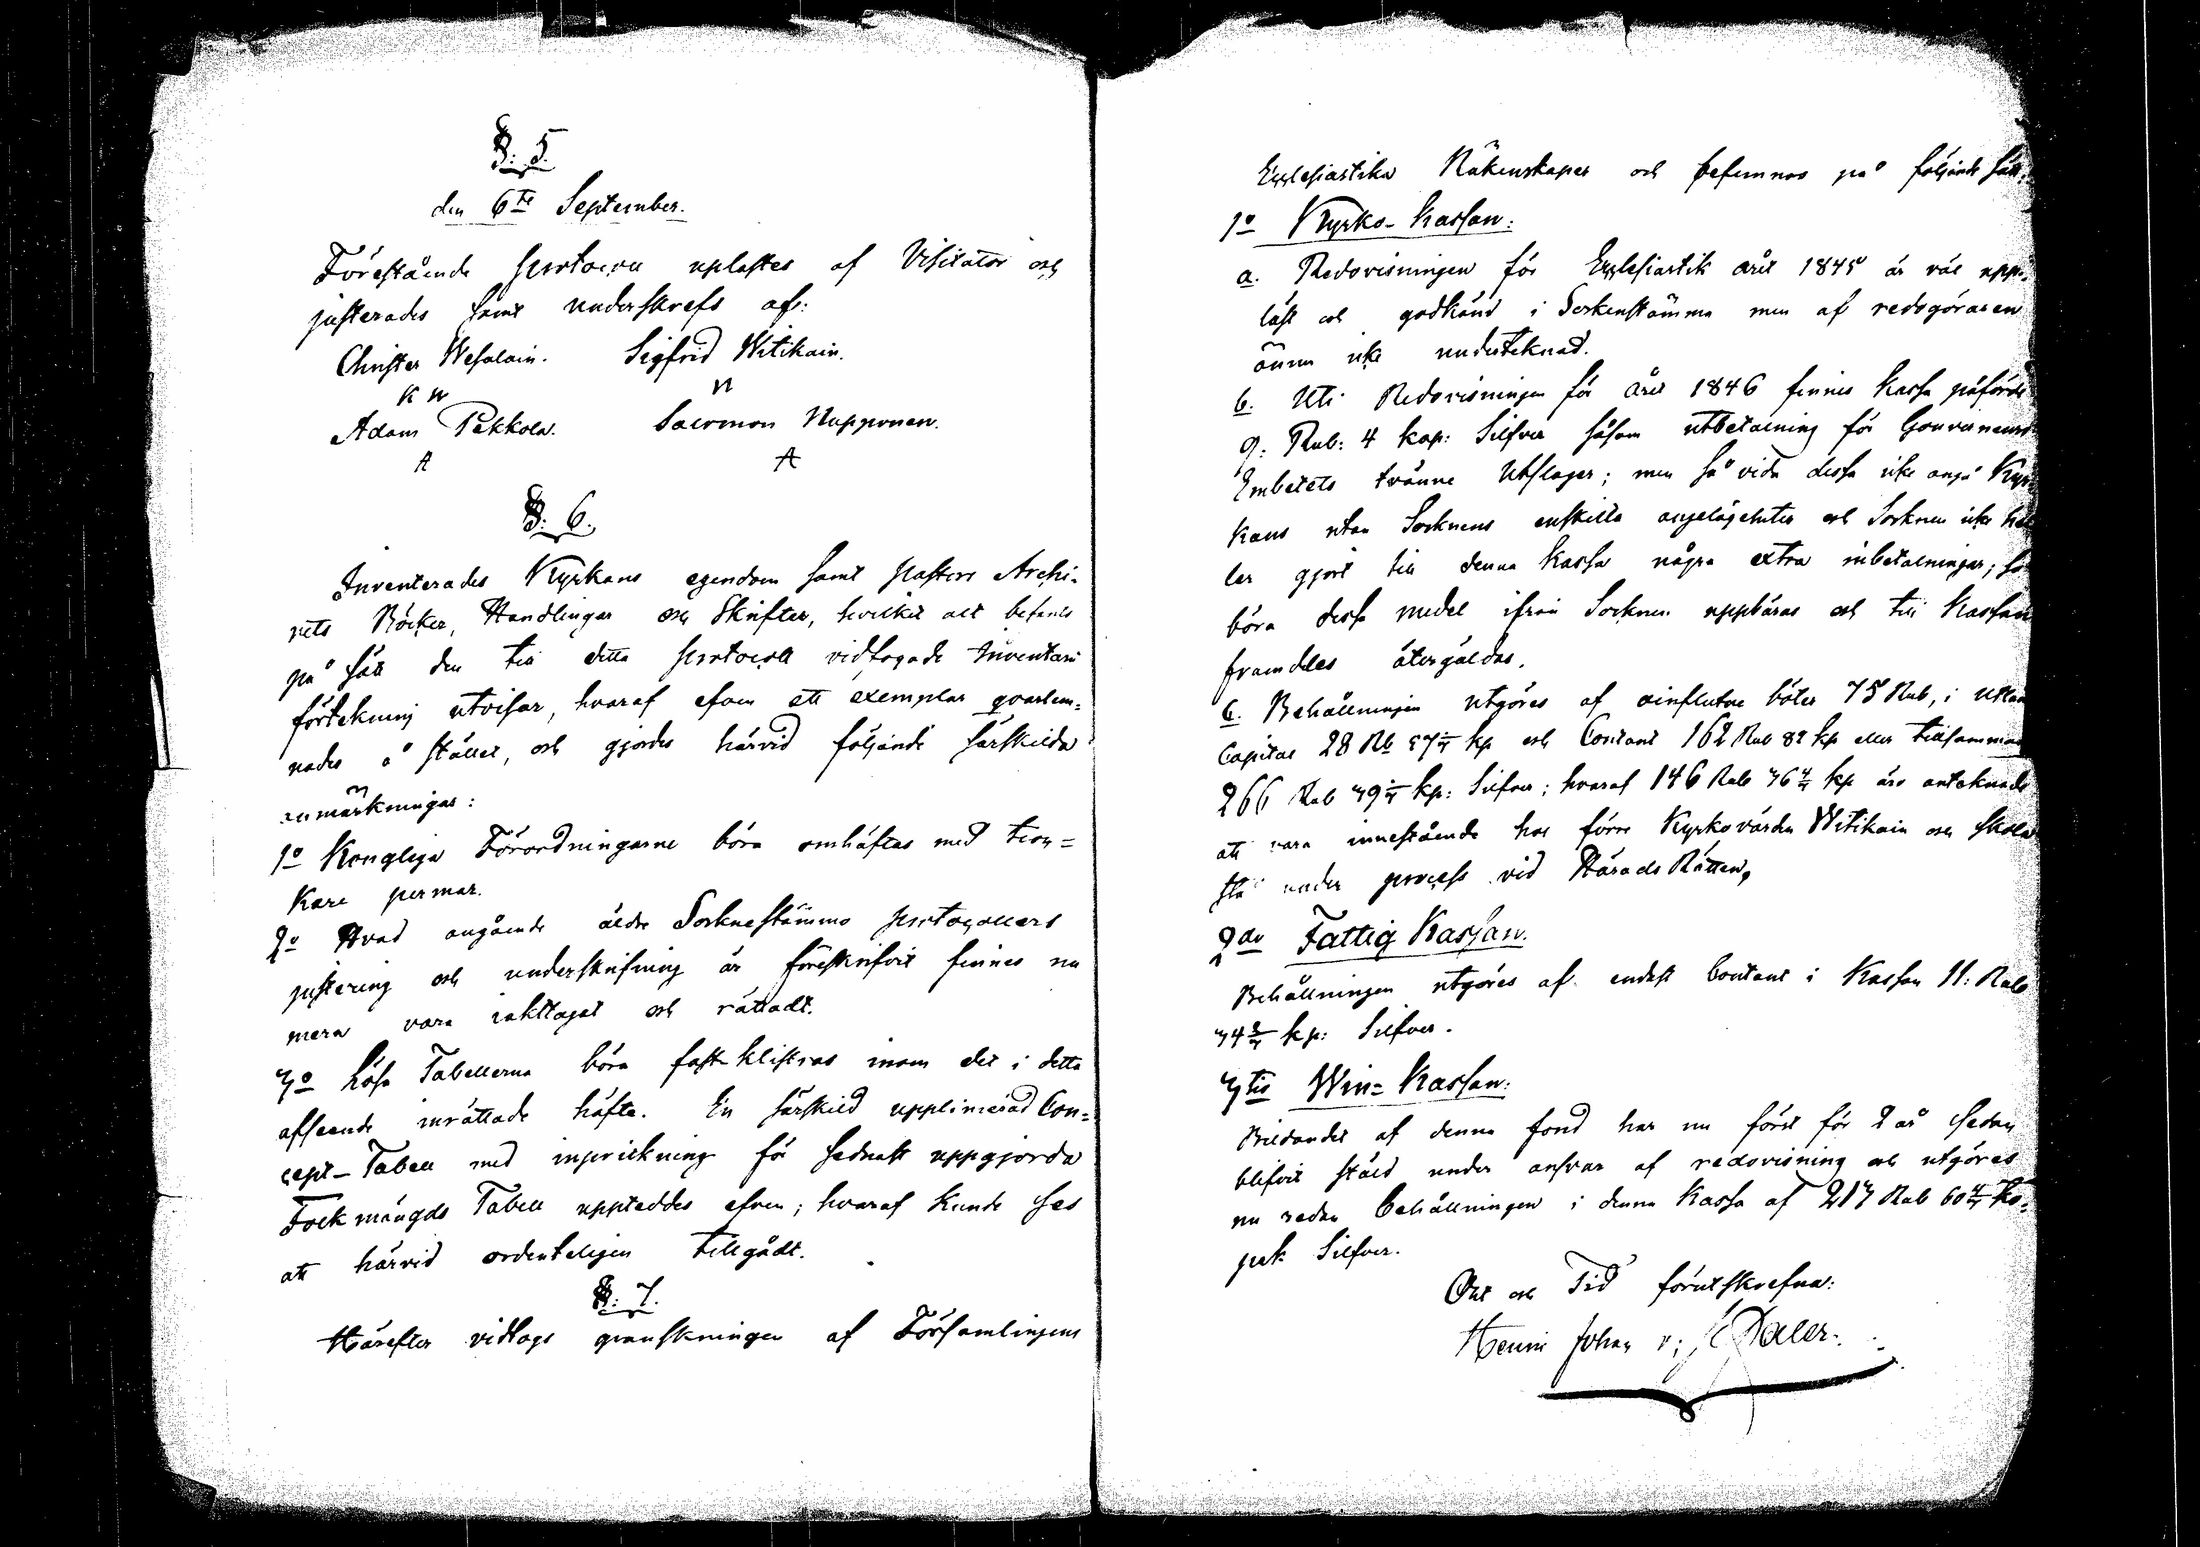 §. 5.
den 6te September.
Förestående protocoll uplästes af Visitator och
justerades samt underskrefs af:
Christer Wesalain. Sigfrid Witikain.
K W W
Adam Pekkola. Salomon Nupponen.
A A
§. 6.
Inventerades Kyrkans egendom samt pastors Archi-
vets Böcker, Handlingar och Skrifter, hvilket alt befants
på sätt den till detta protocoll vidfogade Inventarii
förtekning utvisar, hvaraf efven ett exemplar qvarlem-
nades å stället, och gjordes härvid följande särskilda
anmärkningar:
1o Kongliga Förordningarne böra omhäftas med tjoc=
kare permar.
2o Hvad angående äldre Socknestämmo protocollers
justering och underskrifning är föreskrifvit finnes nu
mera vara iakttagat och rättadt.
3o Lösa Tabellerna böra fastklistras inom det i detta
afseende inrättade häfte. En särskild upplinierad Con=
cept-Tabell med inprickning för sednast uppgjorda
Folkmängds Tabell uppteddes efven; hvaraf kunde ses
att härvid ordenteligen tillgådt.
§. 7.
Härefter vidtogs granskningen af Församlingens
Ecclesiastika Räkenskaper och befunnos på följande sätt:
1o Kyrko-Kassan:
a. Redovisningen för Ecclesiastik året 1845 är väl upp-
läst och godkänd i Sockenstämma men af redogöraren
ännu icke undertecknad.
b. Uti Redovisningen för året 1846 finnes Kassa påförde
9: Rub: 4 kop: Silfver såsom utbetalning för Gouvernements
Embetets tvänne Utslager; men så vida dessa icke angå Kyr-
kans utan Socknens enskilta angelägenheter och Socknen icke hel
ler gjort till denna Kassa några extra inbetalningar; så
böra dessa medel ifrån Socknen uppbäras och till Kassan
framdeles återgäldas.
c. Behållningen utgöres af oinflutne böter 75 Rub, i utlånt
Capital 28 Rb 57 1/7 kp och Contant 162 Rub 82 kp eller tillsammans
266 Rub 39 1/7 kp: Silfver; hvaraf 146 Rub 36 4/7 kp äro antecknade
att vara innestående hos förre Kyrkovärden Witikain och skola
stå under process vid Härads Rätten,
2do Fattig Kassan.
Behållningen utgöres af endast Contant i Kassan 11: Rub
34 2/7 kp: Silfver.
3tio Win=Kassan:
Bildandet af denna fond har nu först för 2 år sedan
blifvit stäld under ansvar af redovisning och utgöres
nu redan behållningen i denna Kassa af 213 Rub 60 4/7 ko-
pek Silfver.
Ort och Tid förutskrefna:
Henric Johan